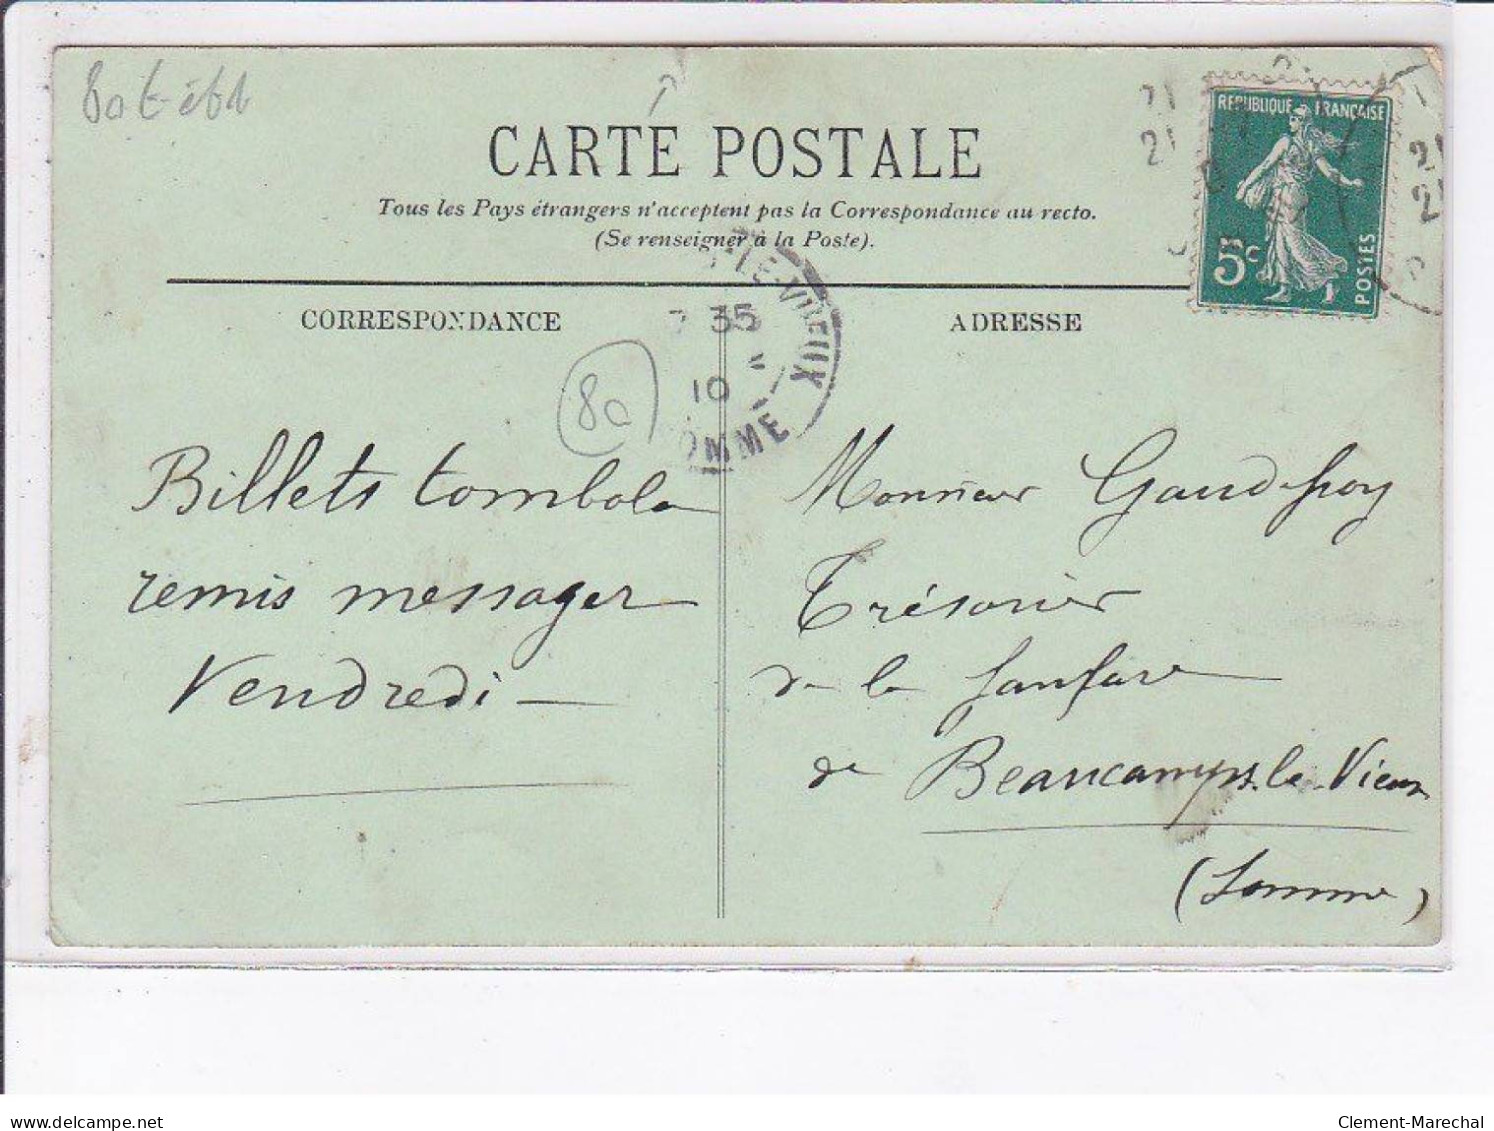 CARTE POSTALE
Tous les Pays étrangers n'acceptent pas la Correspondance au recto.
(Se renseigner à la Poste).
REPUBLIQUE FRANÇAISE
5c
POSTES
CORRESPONDANCE
ADRESSE
LE-VIEUX
35
10
OMME
80
Billets tombola
remis messager
Vendredi
Monsieur Gaudefroy
Trésorier
de la fanfare
de Beaucamps-le-Vieux
(Somme)
www.delcampe.net
Clement-Marechal